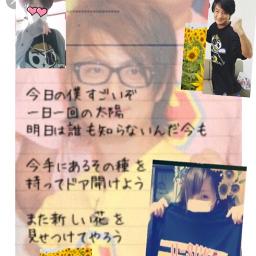 今日の僕 すごいぞ
一日一回の太陽
明日は誰も知らないんだ今も
今手にあるその種を
持ってドア開けよう
また新しい花を
見せつけてやろう